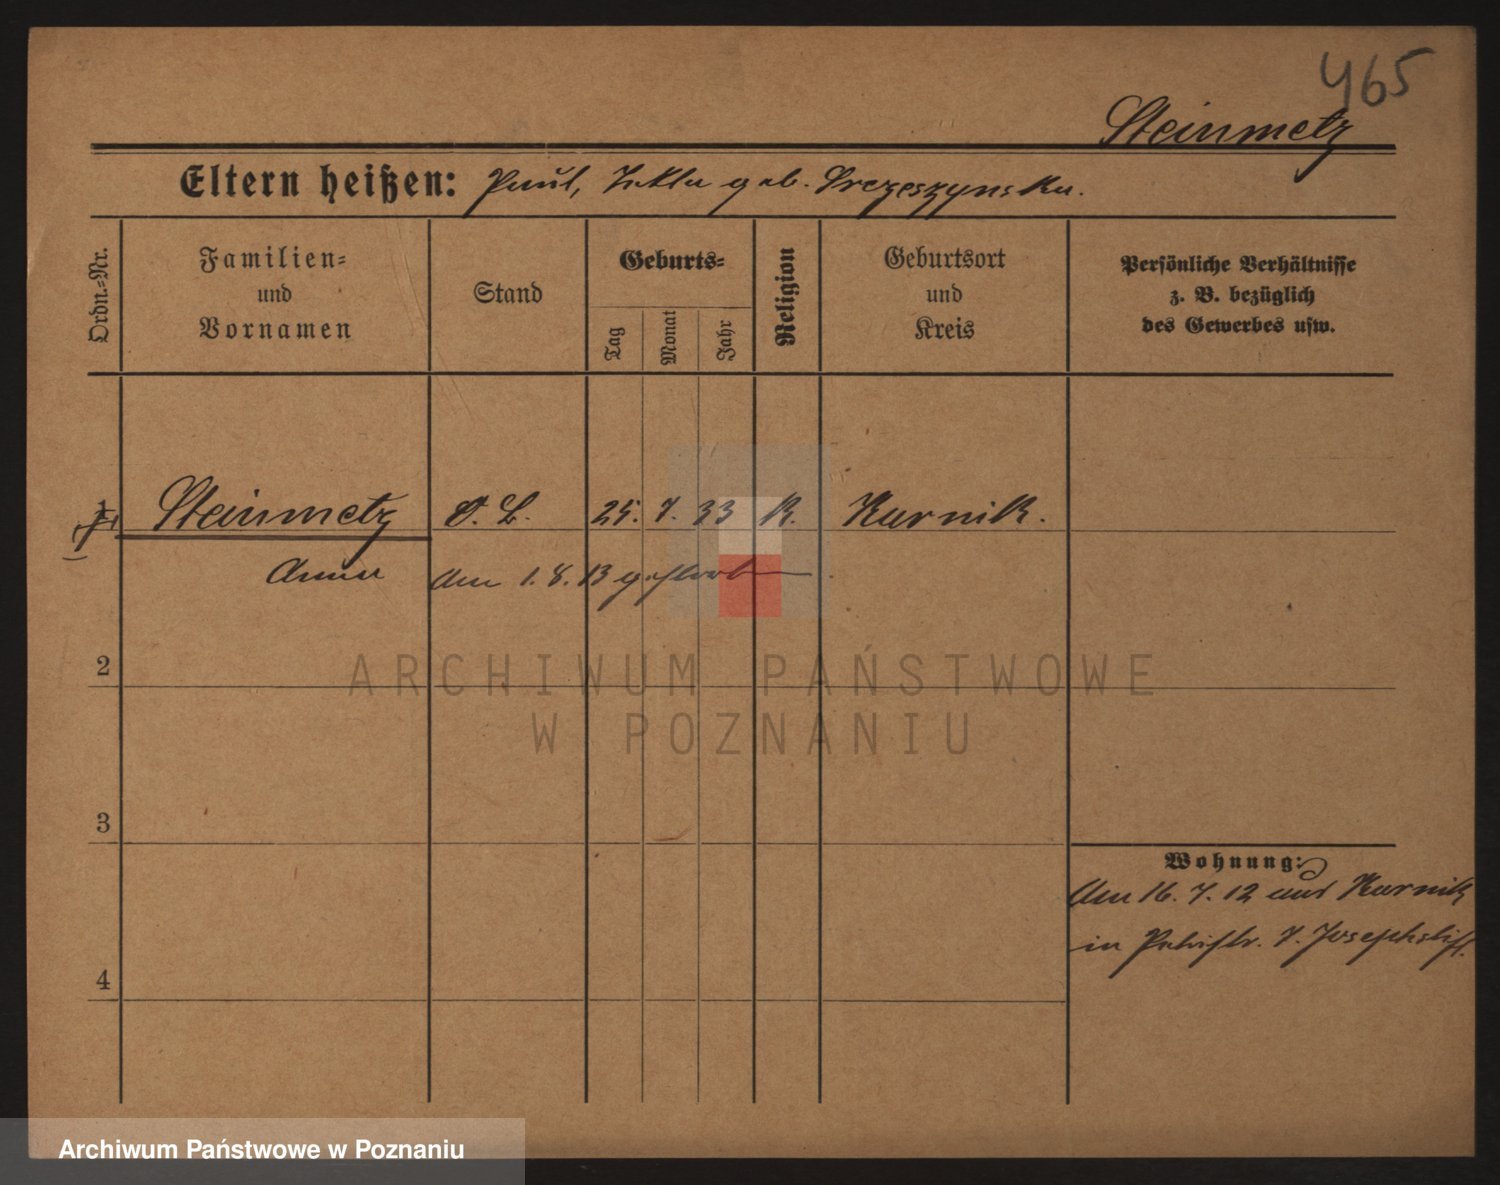 465
Steinmetz
Eltern heißen: Paul, Tekla geb.
Ordn.=Nr.
Familien=
und
Vornamen
Stand
Geburts=
Tag
Monat
Jahr
Religion
Geburtsort
und
Kreis
Persönliche Verhältnisse
z. B. bezüglich
des Gewerbes usw.
1 Steinmetz 25. 7. 33 K. Kurnik.
Anna Am 1. 8. 13 gestorben
2
3
4
Wohnung:
Am 16. 7. 12 aus Kurnik
in 7. Josephstift.
ARCHIWUM PAŃSTWOWE
W POZNANIU
Archiwum Państwowe w Poznaniu